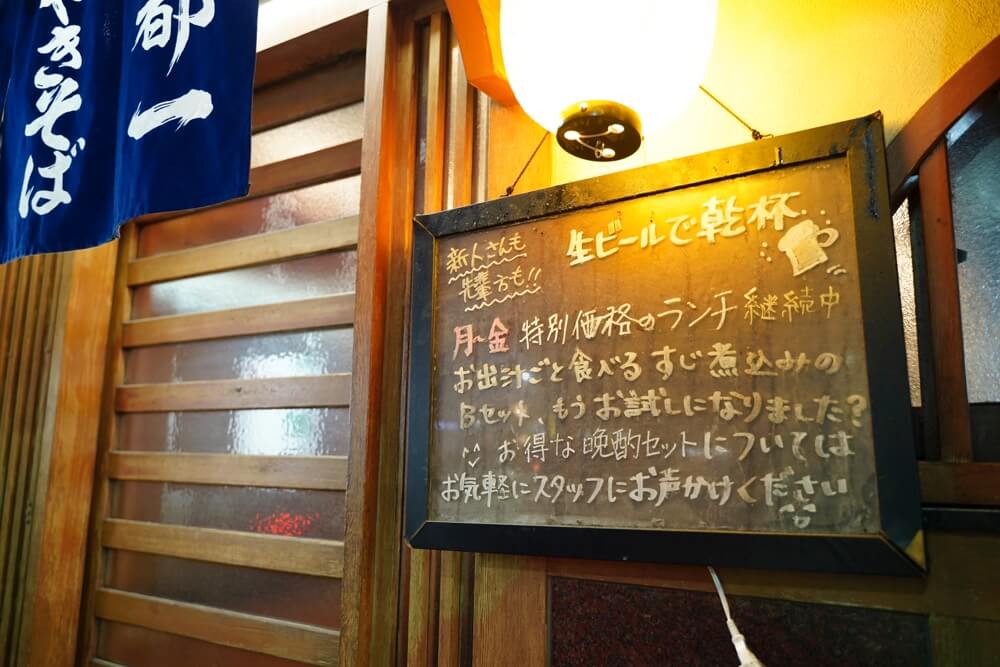 都一
やきそば
新人さんも
先輩方も!!
生ビールで乾杯
月~金 特別価格のランチ継続中
お出汁ごと食べるすじ煮込みの
Bセット、もうお試しになりました?
お得な晩酌セットについては
お気軽にスタッフにお声かけください